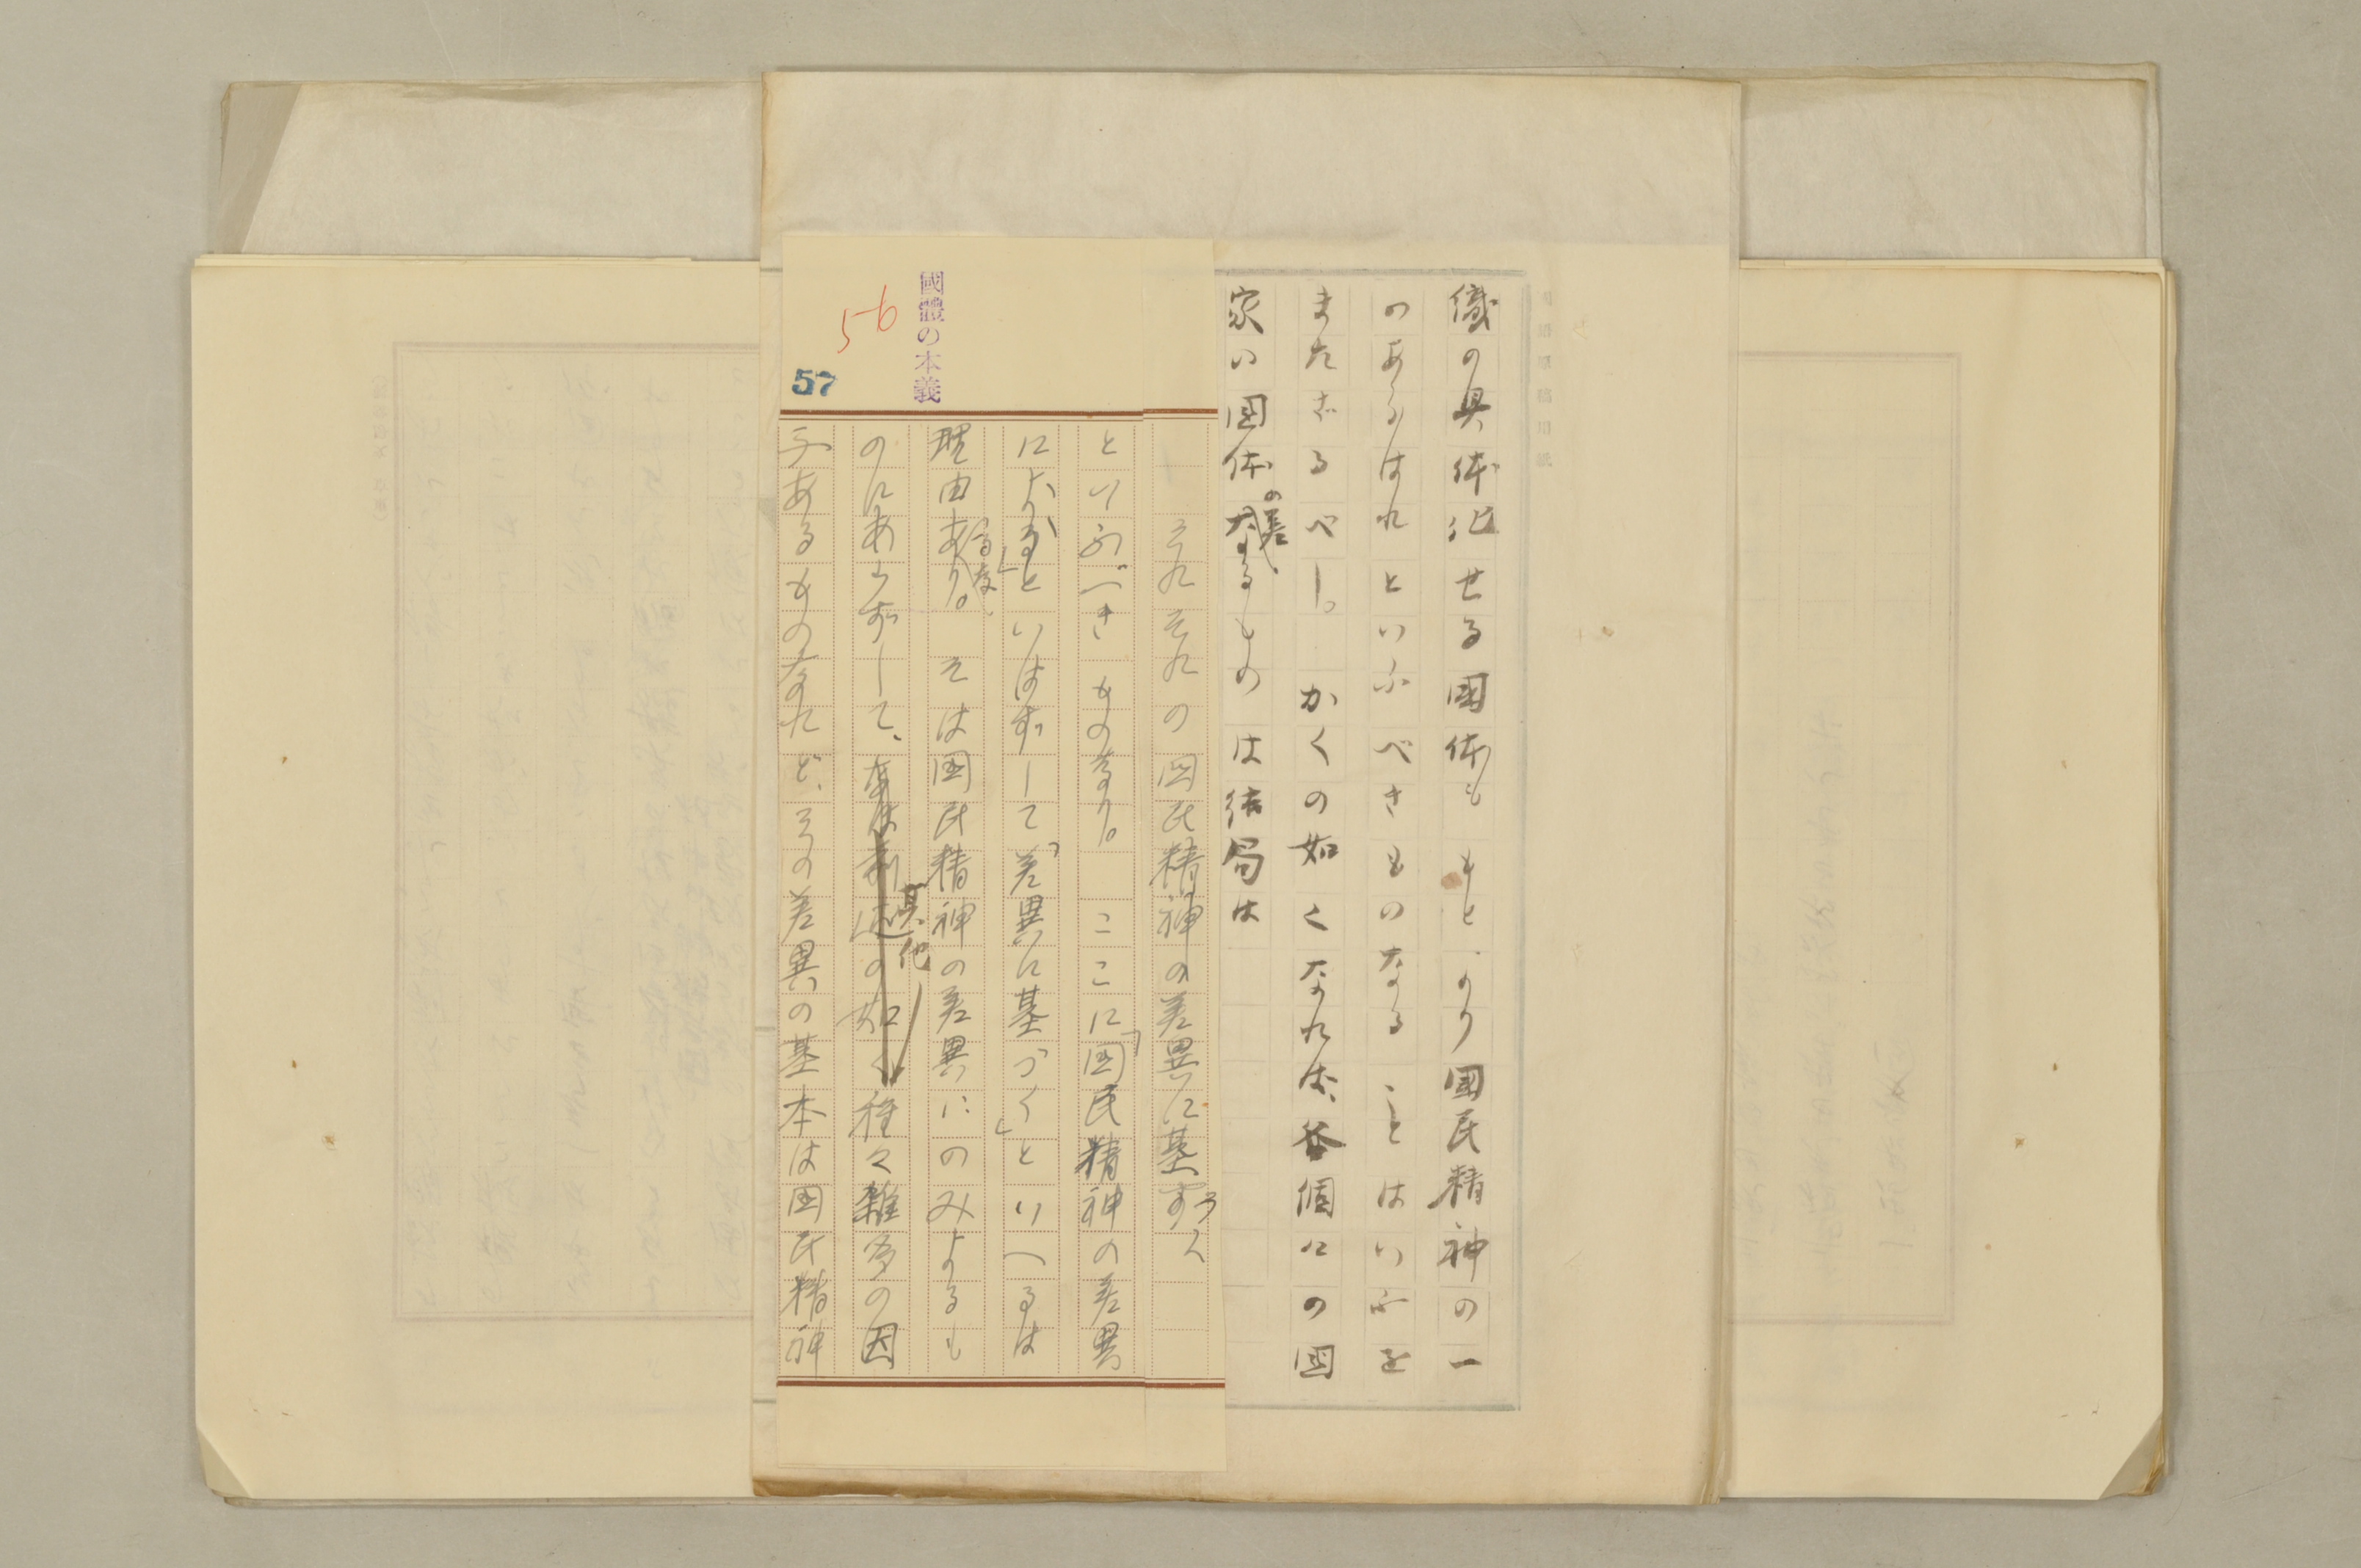 織の具体化せる國体も もとより國民精神の一
のあらはれといふべきものなることはいふを
またざるべし。 かくの如くなれば、各個にの國
家い国体の差なるものは結局は
それそれの国民精神の差異に基づく
といふべきものなり。 ここに「国民精神の差異
による」といはずして「差異に基づく」といへるは
理由あるなり。 そは国民精神の差異にのみよるも
のにあらずして、其他種々雑多の因
子あるものなれど、その差異の基本は国民精神
國體の本義
56
57